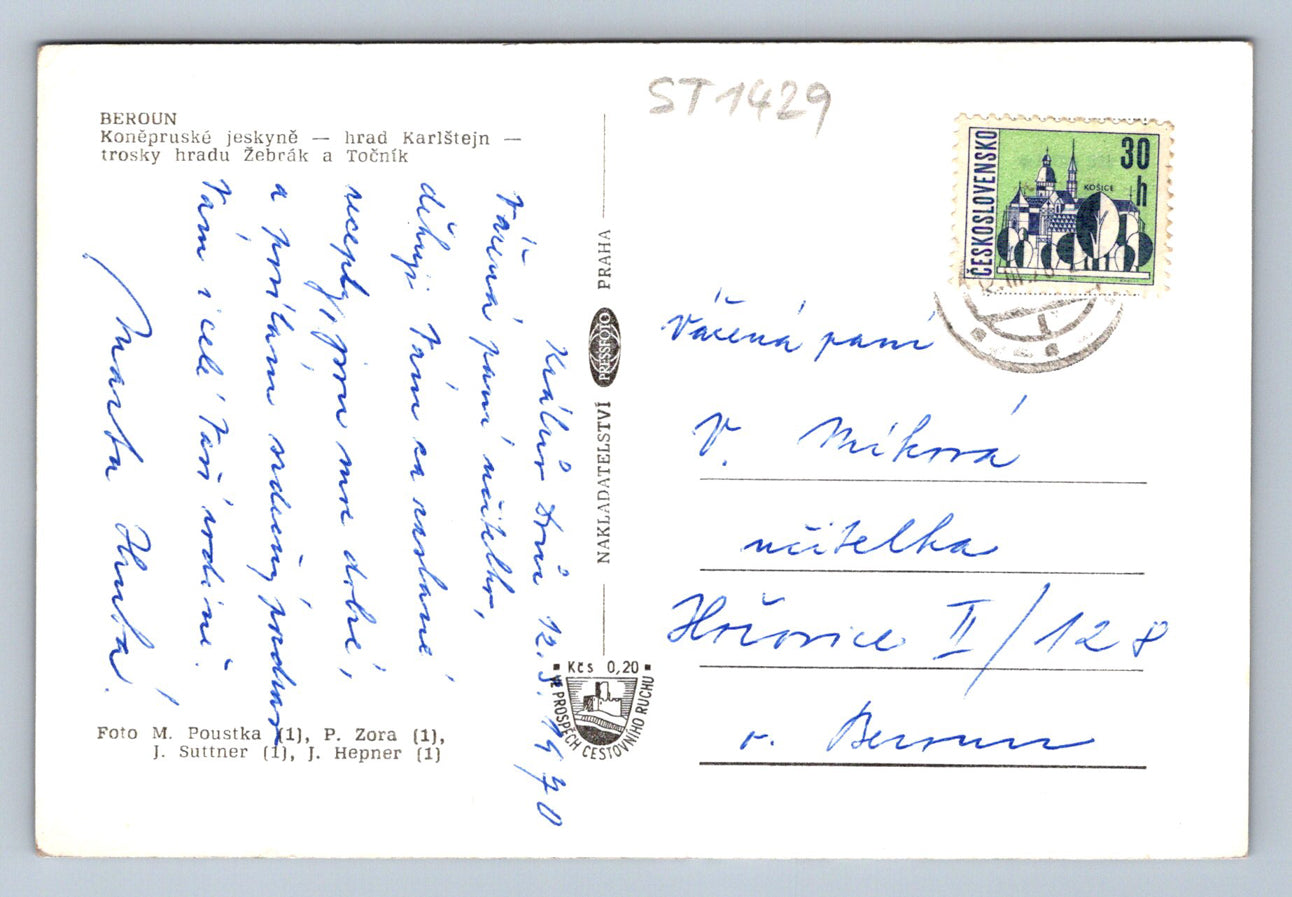 ST 1429
BEROUN
Koněpruské jeskyně — hrad Karlštejn —
trosky hradu Žebrák a Točník
Králův Dvůr 12.3.1970
Vážená paní učitelko,
děkuji Vám za zaslané
recepty, jsou moc dobré,
a posílám srdečný pozdrav
Vám i celé Vaší rodině.
Marta
Foto M. Poustka (1), P. Zora (1),
J. Suttner (1), J. Hepner (1)
NAKLADATELSTVÍ PRESSFOTO PRAHA
Kčs 0,20
VE PROSPĚCH CESTOVNÍHO RUCHU
ČESKOSLOVENSKO
30 h
KOŠICE
Vážená paní
V. Míková
učitelka
Hořovice II/128
o. Beroun